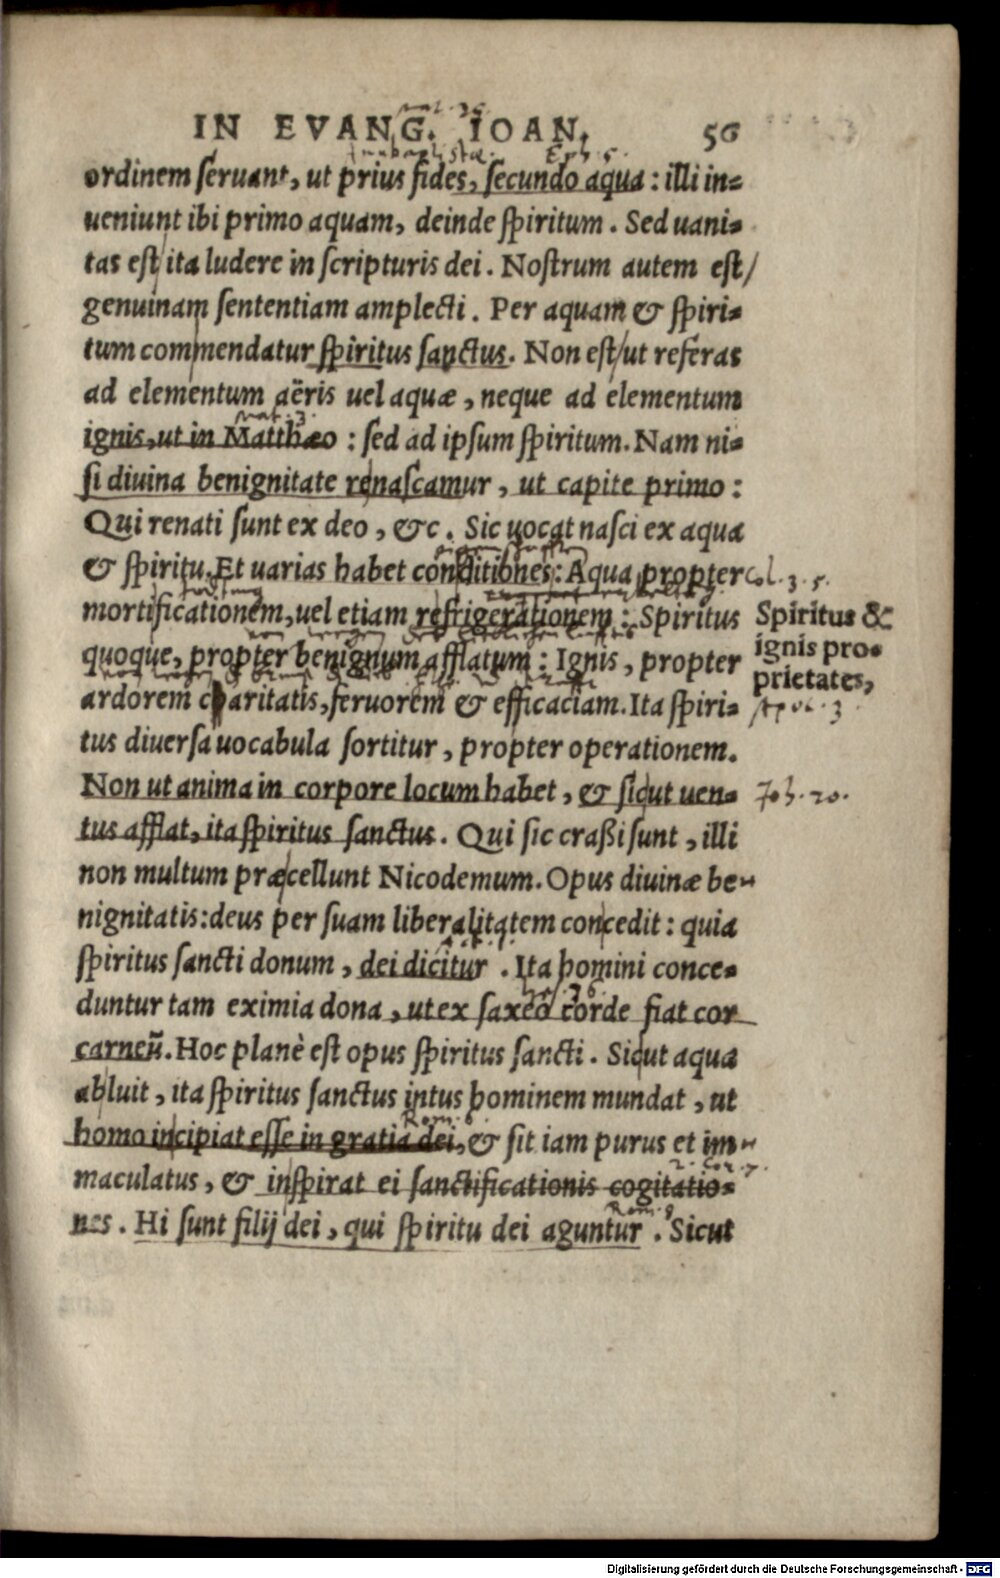 IN EVANG. IOAN. 56
ordinem seruant, ut prius fides, secundo aqua : illi in-
ueniunt ibi primo aquam, deinde spiritum . Sed uani-
tas est ita ludere in scripturis dei . Nostrum autem est/
genuinam sententiam amplecti . Per aquam & spiri-
tum commendatur spiritus sanctus . Non est/ut referas
ad elementum aëris uel aquæ , neque ad elementum
mat. 3.
ignis, ut in Matthæo : sed ad ipsum spiritum . Nam ni-
si diuina benignitate renascamur , ut capite primo :
Qui renati sunt ex deo , &c . Sic uocat nasci ex aqua
& spiritu. Et uarias habet conditiones : Aqua propter
Col. 3. 5.
mortificationem, uel etiam refrigerationem : Spiritus
quoque, propter benignum afflatum : Ignis , propter
ardorem charitatis, feruorem & efficaciam. Ita spiri-
Spiritus &
ignis pro-
prietates,
tus diuersa uocabula sortitur , propter operationem .
Non ut anima in corpore locum habet , & sicut uen-
Joh. 20.
tus afflat, ita spiritus sanctus . Qui sic craßi sunt , illi
non multum præcellunt Nicodemum. Opus diuinæ be-
nignitatis: deus per suam liberalitatem concedit : quia
spiritus sancti donum , dei dicitur . Ita homini conce-
duntur tam eximia dona , ut ex saxeo corde fiat cor
carneũ. Hoc planè est opus spiritus sancti . Sicut aqua
abluit , ita spiritus sanctus intus hominem mundat , ut
Rom. 8.
homo incipiat esse in gratia dei, & sit iam purus et im-
2. Cor. 7.
maculatus , & inspirat ei sanctificationis cogitatio-
Rom. 8
nes . Hi sunt filij dei , qui spiritu dei aguntur . Sicut
Digitalisierung gefördert durch die Deutsche Forschungsgemeinschaft - DFG